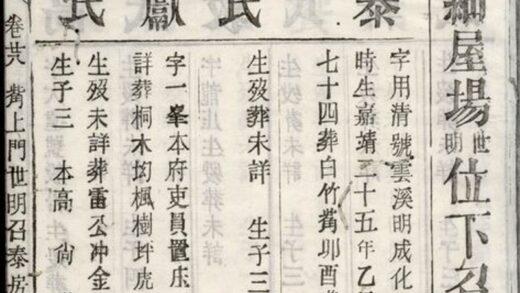 細屋場世明位下召
泰
字用清號雲溪明成化
時生嘉靖二十五年乙
七十四葬白竹觜卯酉
氏
生歿葬未詳 生子三
獻
字一峯本府吏員置庄
詳葬桐木坳楓樹坪虎
氏
生歿未詳葬雷公冲金
生子三 本高 尙
卷廿八 觜上門世明召泰房